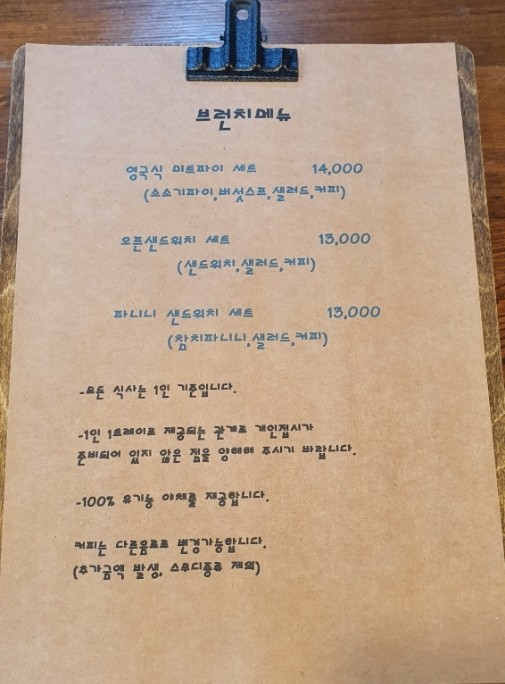 브런치메뉴
영국식 미트파이 세트 14,000
(소소기파이,버섯스프,샐러드,커피)
오픈샌드위치 세트 13,000
(샌드위치,샐러드,커피)
파니니 샌드위치 세트 13,000
(참치파니니,샐러드,커피)
-모든 식사는 1인 기준입니다.
-1인 1트레이로 제공되는 관계로 개인접시가
준비되어 있지 않은 점을 양해해 주시기 바랍니다.
-100% 유기농 야채를 제공합니다.
커피는 다른음료로 변경가능합니다.
(추가금액 발생, 스무디종류 제외)